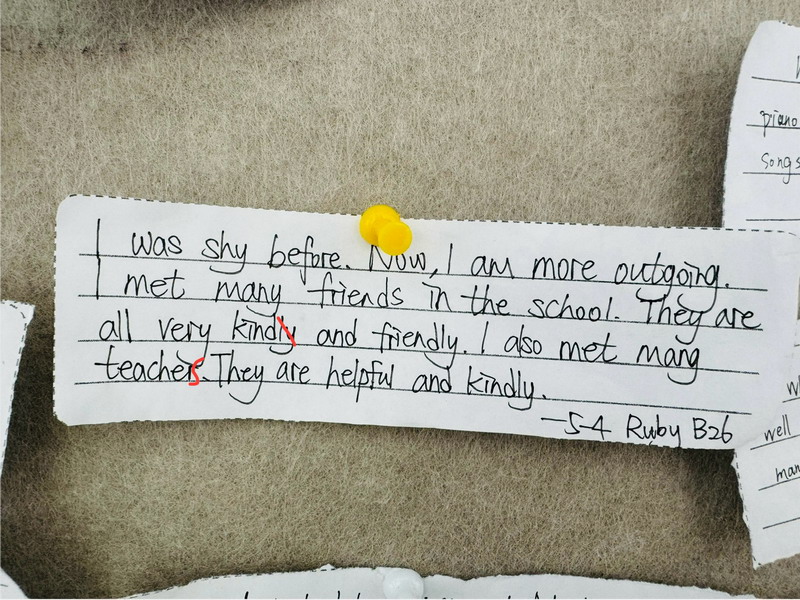 I was shy before. Now, I am more outgoing.
I met many friends in the school. They are
all very kindly and friendly. I also met many
teachers. They are helpful and kindly.
—5-4 Ruby B26
piano
songs
well